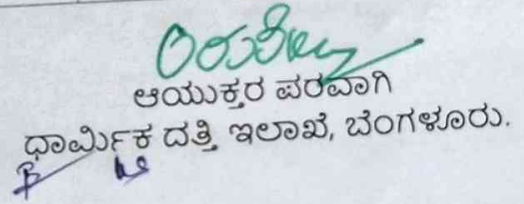 ಆಯುಕ್ತರ ಪರವಾಗಿ
ಧಾರ್ಮಿಕ ದತ್ತಿ ಇಲಾಖೆ, ಬೆಂಗಳೂರು.